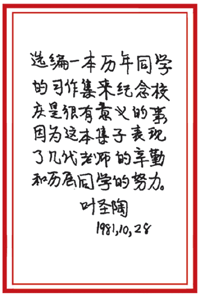 选编一本历年同学
的习作集来纪念校
庆是很有意义的事
因为这本集子表现
了几代老师的辛勤
和历届同学的努力。
叶圣陶
1981,10,28